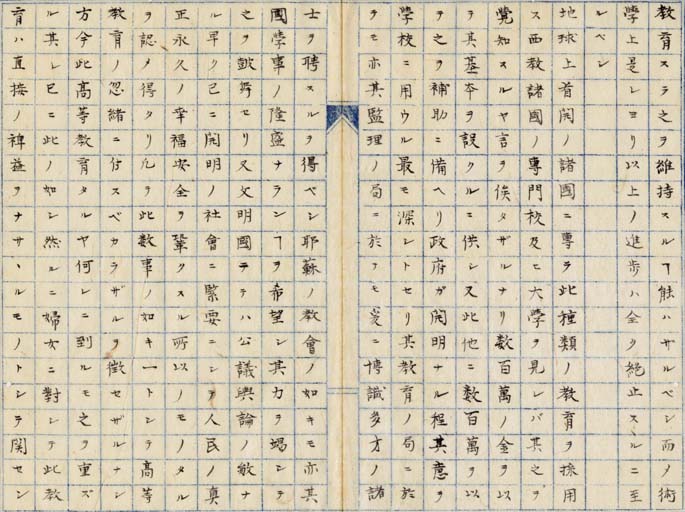 教育スラ之ヲ維持スルヿ能ハザルベシ而ノ術
學上是レヨリ以上ノ進歩ハ全ク絶止スルニ至
ルベシ
地球上着開ノ諸國ニ專ラ此種類ノ教育ヲ採用
ス西教諸國ノ專門校及ヒ大學ヲ見レバ其之ヲ
覺知スルヤ言ヲ俟タザルナリ數百萬ノ金ヲ以
テ其基本ヲ設クルニ供シ又此他ニ數百萬ヲ以
テ之ヲ補助ニ備ヘリ政府ガ開明ナル程其意ヲ
學校ニ用ウル最モ深シトセリ其教育ノ局ニ於
テモ亦其監理ノ局ニ於テモ爰ニ博識多方ノ諸
士ヲ聘スルヲ得ベシ耶蘇ノ教會ノ如キモ亦其
國學事ノ隆盛ナランヿヲ希望シ其力ヲ竭シテ
之ヲ皷舞セリ又文明國ニテハ公議輿論ノ敏ナ
ル早ク已ニ開明ノ社會ニ緊要ニシテ人民ノ眞
正永久ノ幸福安全ヲ鞏クスル所以ノモノタル
ヲ認メ得タリ凡テ此數事ノ如キ一トシテ高等
教育ノ忽緒ニ付スベカラザルヲ徴セザルナシ
方今此高等教育タルヤ何レニ到ルモ之ヲ重ズ
ル其レ已ニ此ノ如シ然ルニ婦女ニ對シテ此教
育ハ直接ノ裨益ヲナサヽルモノトシテ関セシ